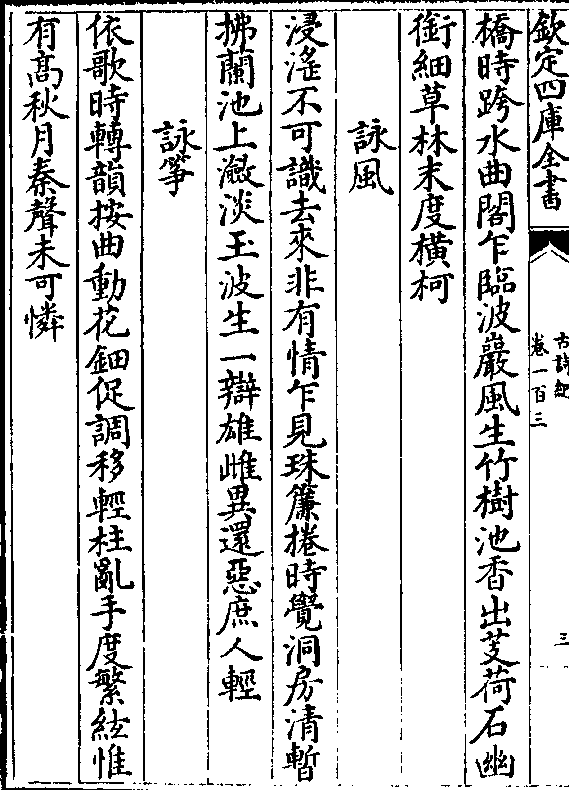 欽定四庫全書
古詩紀
卷一百三
三
橋時跨水曲閣乍臨波巖風生竹樹池香出芰荷石幽
銜細草林末度横柯
詠風
浸淫不可識去來非有情乍見珠簾捲時覺洞房清暫
拂蘭池上瀲淡玉波生一辯雄雌異還惡庶人輕
詠箏
依歌時轉韻按曲動花鈿促調移輕柱亂手度繁絃惟
有髙秋月秦聲未可憐